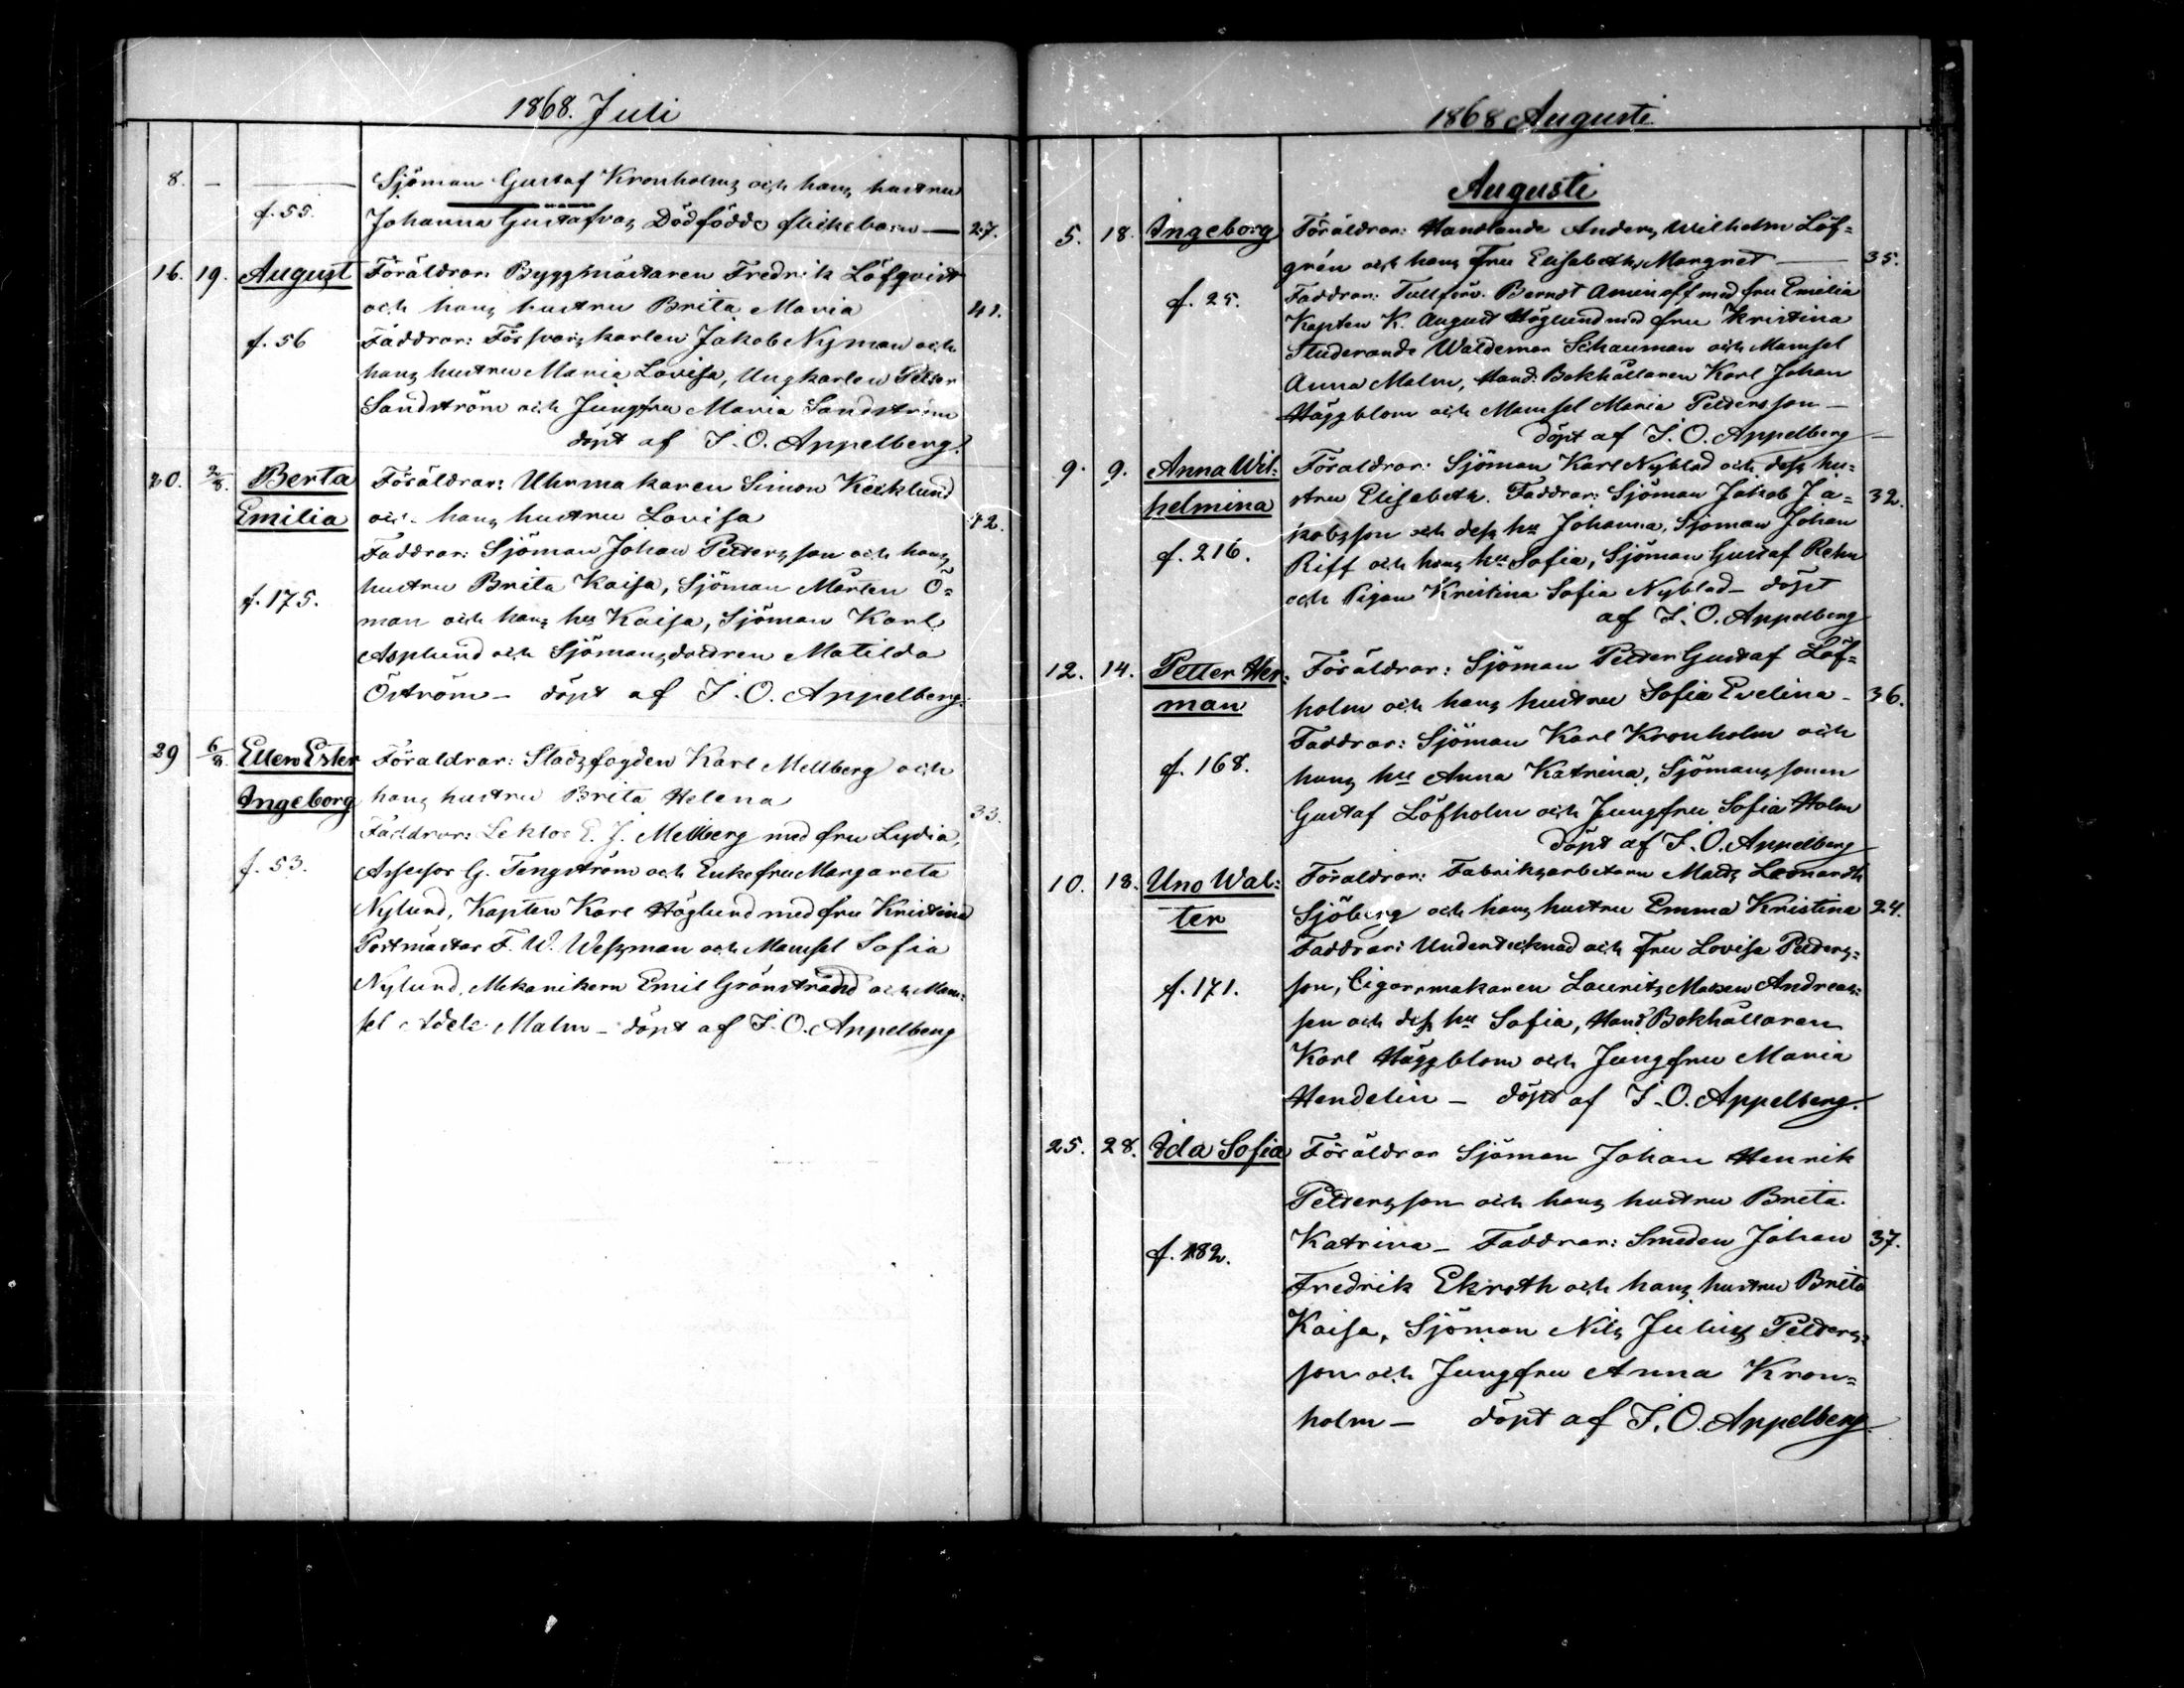 1868. Juli
8. — — Sjöman Gustaf Kronholms och hans hustru
f. 55. Johanna Gustafva, Dödfödde flickebarn — 27.
16. 19. August Föräldrar: Byggmästaren Fredrik Löfqvist
och hans hustru Brita Maria 41.
f. 56 Faddrar: Försvarskarlen Jakob Nyman och
hans hustru Maria Lovisa, Ungkarlen Petter
Sandström och Jungfru Maria Sandström
döpt af I. O. Appelberg.
20. 2/8. Berta Föräldrar: Uhrmakaren Simon Kecklund
Emilia och hans hustru Lovisa 42.
Faddrar: Sjöman Johan Pettersson och hans
hustru Brita Kaisa, Sjöman Mårten Ö=
f. 175.
man och hans hu Kaisa, Sjöman Karl
Asplund och Sjömansdottren Matilda
Öström — döpt af I. O. Appelberg.
29 6/8. Ellen Ester Föräldrar: Stadsfogden Karl Mellberg och
Ingeborg hans hustru Brita Helena 33.
Faddrar: Lektor E. J. Mellberg med fru Lydia,
f. 53. Assessor G. Tengström och Enkefru Margareta
Nylund, Kapten Karl Höglund med fru Kristina
Postmästar F. W. Wessman och Mamsel Sofia
Nylund, Mekanikern Emil Grönstrand och Mam=
sel Adele Malm — döpt af I. O. Appelberg
1868 Augusti
Augusti
5. 18. Ingeborg Föräldrar: Handlande Anders Wilhelm Löf=
grén och hans Fru Elisabeth Margret — 35.
f. 25. Faddrar: Tullförv. Berndt Aminoff med fru Emilia
Kapten K. August Höglund med fru Kristina
Studerande Waldemar Schauman och Mamsel
Anna Malm, Hand. Bokhållaren Karl Johan
Häggblom och Mamsel Maria Pettersson —
döpt af I. O. Appelberg —
9. 9. Anna Wil= Föräldrar: Sjöman Karl Nyblad och dess hu=
helmina stru Elisabeth. Faddrar: Sjöman Jakob Ja= 32.
kobsson och dess hu Johanna, Sjöman Johan
f. 216. Riff och hans hu Sofia, Sjöman Gustaf Rehn
och Pigan Kristina Sofia Nyblad — döpt
af I. O. Appelberg
12. 14. Petter Her= Föräldrar: Sjöman Petter Gustaf Löf=
man holm och hans hustru Sofia Evelina — 36.
Faddrar: Sjöman Karl Kronholm och
f. 168. hans hu Anna Katrina, Sjömanssonen
Gustaf Löfholm och Jungfru Sofia Holm
döpt af I. O. Appelberg
10. 18. Uno Wal= Föräldrar: Fabriksarbetaren Matts Leonardt
ter Sjöberg och hans hustru Emma Kristina 24.
Faddrar: Undertecknad och Fru Lovisa Petters=
f. 171. son, Cigarrmakaren Lauritz Andreas=
sen och dess hu Sofia, Hand. Bokhållaren
Karl Häggblom och Jungfru Maria
Hendelin — döpt af I. O. Appelberg.
25. 28. Ida Sofia Föräldrar Sjöman Johan Henrik
Pettersson och hans hustru Brita
f. 182. Katrina — Faddrar: Smeden Johan 37.
Fredrik Ekroth och hans hustru Brita
Kaisa, Sjöman Nils Julius Petters=
son och Jungfru Anna Kron=
holm — döpt af I. O. Appelberg